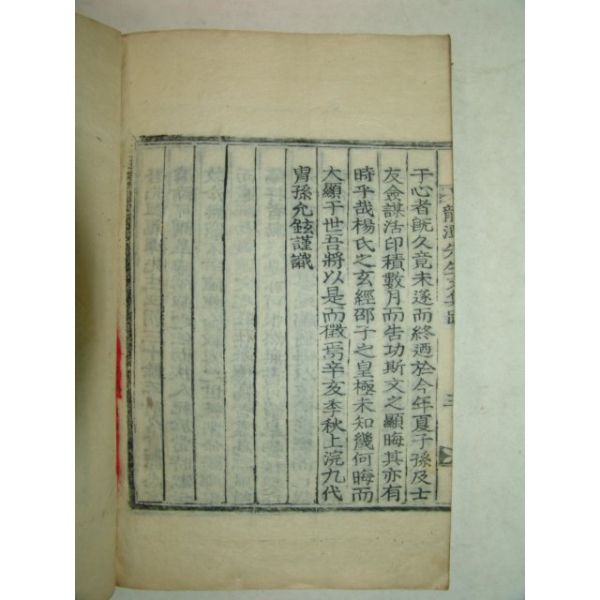 龍潭先生文集跋
三
于心者旣久竟未遂而終迺於今年夏子孫及士
友僉謀活印積數月而告功斯文之顯晦其亦有
時乎哉楊氏之玄經邵子之皇極未知幾何晦而
大顯于世吾將以是而徵焉辛亥季秋上浣九代
冑孫允鉉謹識